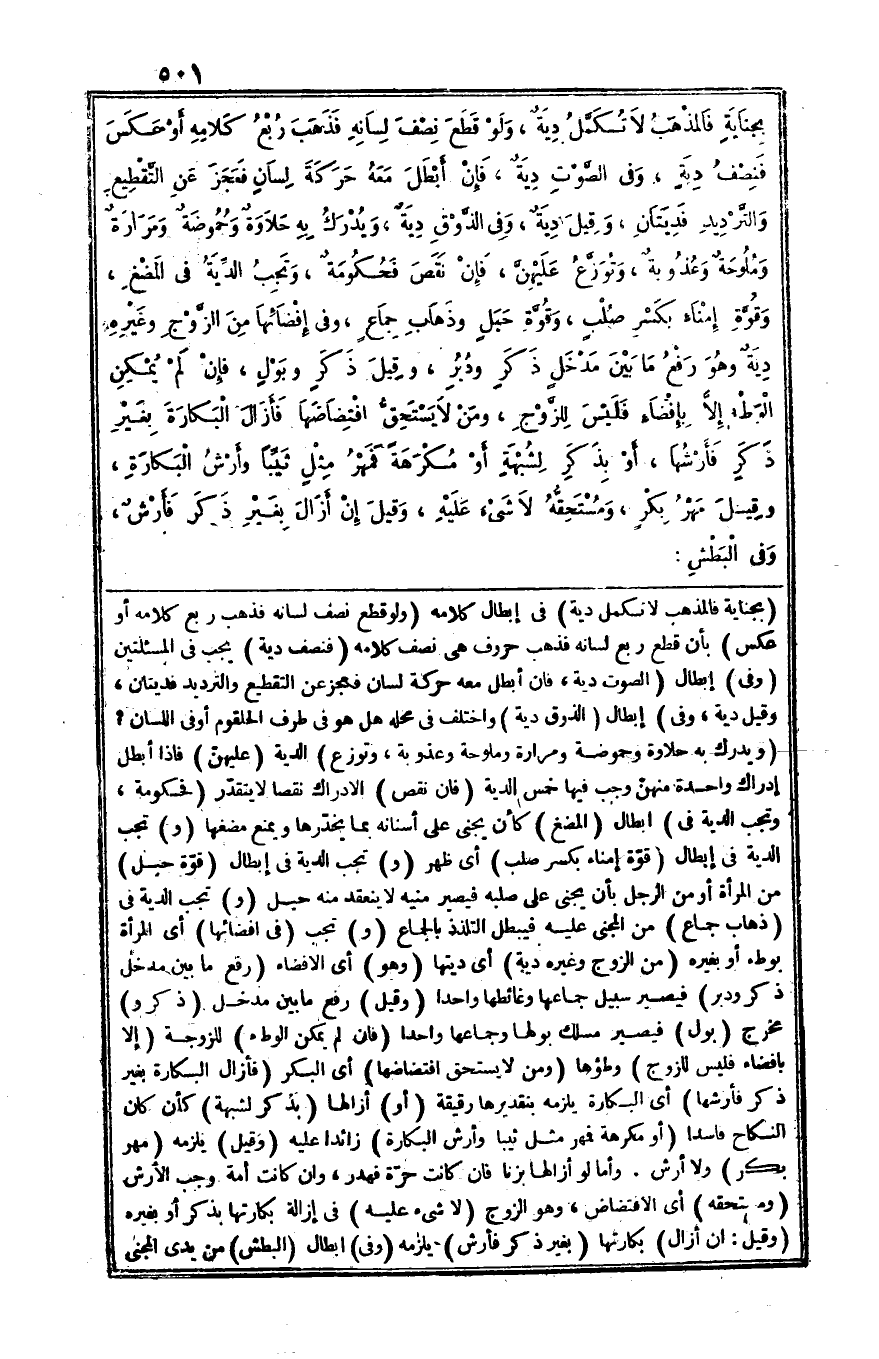 ٥٠١
بِجِنَايَةٍ فَالمَذْهَبُ لاَ تُسكَمَّلُ دِيَةٌ ، وَلَوْ قَطَعَ نِصْفَ لِسَانِهِ فَذَهَبَ رُبْعُ كَلاَمِهِ أَوْ عَكَسَ
فَنِصْفُ دِيَةٍ ، وَفى الصَّوْتِ دِيَةٌ ، فَإِنْ أَبْطَلَ مَعَهُ حَرَكَةَ لِسَانٍ فَعَجَزَ عَنِ التَّقْطِيعِ
وَالتَّرْدِيدِ فَدِيَتَانِ ، وَقِيلَ دِيَةٌ ، وَفِى الذَّوْقِ دِيَةٌ ، وَيُدْرَكُ بِهِ حَلاَوَةٌ وَحُمُوضَةٌ وَمَرَارَةٌ
وَمُلُوحَةٌ وَعُذُوبَةٌ ، وَتُوَزَّعُ عَلَيْهِنَّ ، فَإِنْ نَقَصَ فَحُكُومَةٌ ، وَتَجِبُ الدِّيَةُ فى المَضْغِ ،
وَقُوَّةِ إِمْنَاءٍ بِكَسْرِ صُلْبٍ ، وَقُوَّةِ حَبَلٍ وَذَهَابِ جِمَاعٍ ، وَفى إِفْضَائِهَا مِنَ الزَّوْجِ وَغَيْرِهِ
دِيَةٌ وَهُوَ رَفْعُ مَا بَيْنَ مَدْخَلِ ذَكَرٍ وَدُبُرٍ ، وَقِيلَ ذَكَرٍ وَبَوْلٍ ، فَإِنْ لَمْ يُمْكِنِ
الْوَطْءُ إِلاَّ بِإِفْضَاءٍ فَلَيْسَ لِلزَّوْجِ ، وَمَنْ لاَ يَسْتَحِقُّ افْتِضَاضَهَا فَأَزَالَ الْبَكَارَةَ بِغَيْرِ
ذَكَرٍ فَأَرْشُهَا ، أَوْ بِذَكَرٍ لِشُبْهَةٍ أَوْ مُكْرَهَةً فَمَهْرُ مِثْلٍ ثَيِّبًا وَأَرْشُ الْبَكَارَةِ ،
وَقِيلَ مَهْرُ بِكْرٍ ، وَمُسْتَحِقُّهُ لاَ شَىْءَ عَلَيْهِ ، وَقِيلَ إِنْ أَزَالَ بِغَيْرِ ذَكَرٍ فَأَرْشٌ ،
وَفى الْبَطْشِ :
(بجناية فالمذهب لا تكمل دية) فى إبطال كلامه (ولو قطع نصف لسانه فذهب ربع كلامه أو
عكس) بأن قطع ربع لسانه فذهب حروف هى نصف كلامه (فنصف دية) يجب فى المسئلتين
(وفى) إبطال (الصوت دية ، فان أبطل معه حركة لسان فعجز عن التقطيع والترديد فديتان ،
وقيل دية ، وفى) إبطال (الذوق دية) واختلف فى محله هل هو فى طرف الحلقوم أو فى اللسان ؟
(ويدرك به حلاوة وحموضة ومرارة وملوحة وعذوبة ، وتوزع) الدية (عليهن) فاذا أبطل
إدراك واحدة منهن وجب فيها خمس الدية (فان نقص) الادراك نقصا لا يتقدّر (فحكومة ،
وتجب الدية فى) ابطال (المضغ) كأن يجنى على أسنانه بما يخدّرها ويمنع مضغها (و) تجب
الدية فى إبطال (قوّة إمناء بكسر صلب) أى ظهر (و) تجب الدية فى إبطال (قوّة حبل)
من المرأة أو من الرجل بأن يجنى على صلبه فيصير منيه لا ينعقد منه حبل (و) تجب الدية فى
(ذهاب جماع) من المجنى عليه فيبطل التلذذ بالجماع (و) تجب (فى افضائها) أى المرأة
بوطء أو بغيره (من الزوج وغيره دية) أى ديتها (وهو) أى الافضاء (رفع ما بين مدخل
ذكر ودبر) فيصير سبيل جماعها وغائطها واحدا (وقيل) رفع ما بين مدخل (ذكر و)
مخرج (بول) فيصير مسلك بولها وجماعها واحدا (فان لم يمكن الوطء) للزوجة (إلا
بافضاء فليس للزوج) وطؤها (ومن لا يستحق افتضاضها) أى البكر (فأزال البكارة بغير
ذكر فأرشها) أى البكارة يلزمه بتقديرها رقيقة (أو) أزالها (بذكر لشبهة) كأن كان
النكاح فاسدا (أو مكرهة فمهر مثل ثيبا وأرش البكارة) زائدا عليه (وقيل) يلزمه (مهر
بكر) ولا أرش . وأما لو أزالها بزنا فان كانت حرّة فهدر ، وان كانت أمة وجب الأرش
(ومستحقه) أى الافتضاض ، وهو الزوج (لا شىء عليه) فى إزالة بكارتها بذكر أو بغيره
(وقيل : ان أزال) بكارتها (بغير ذكر فأرش) يلزمه (وفى) ابطال (البطش) من يدى المجنى